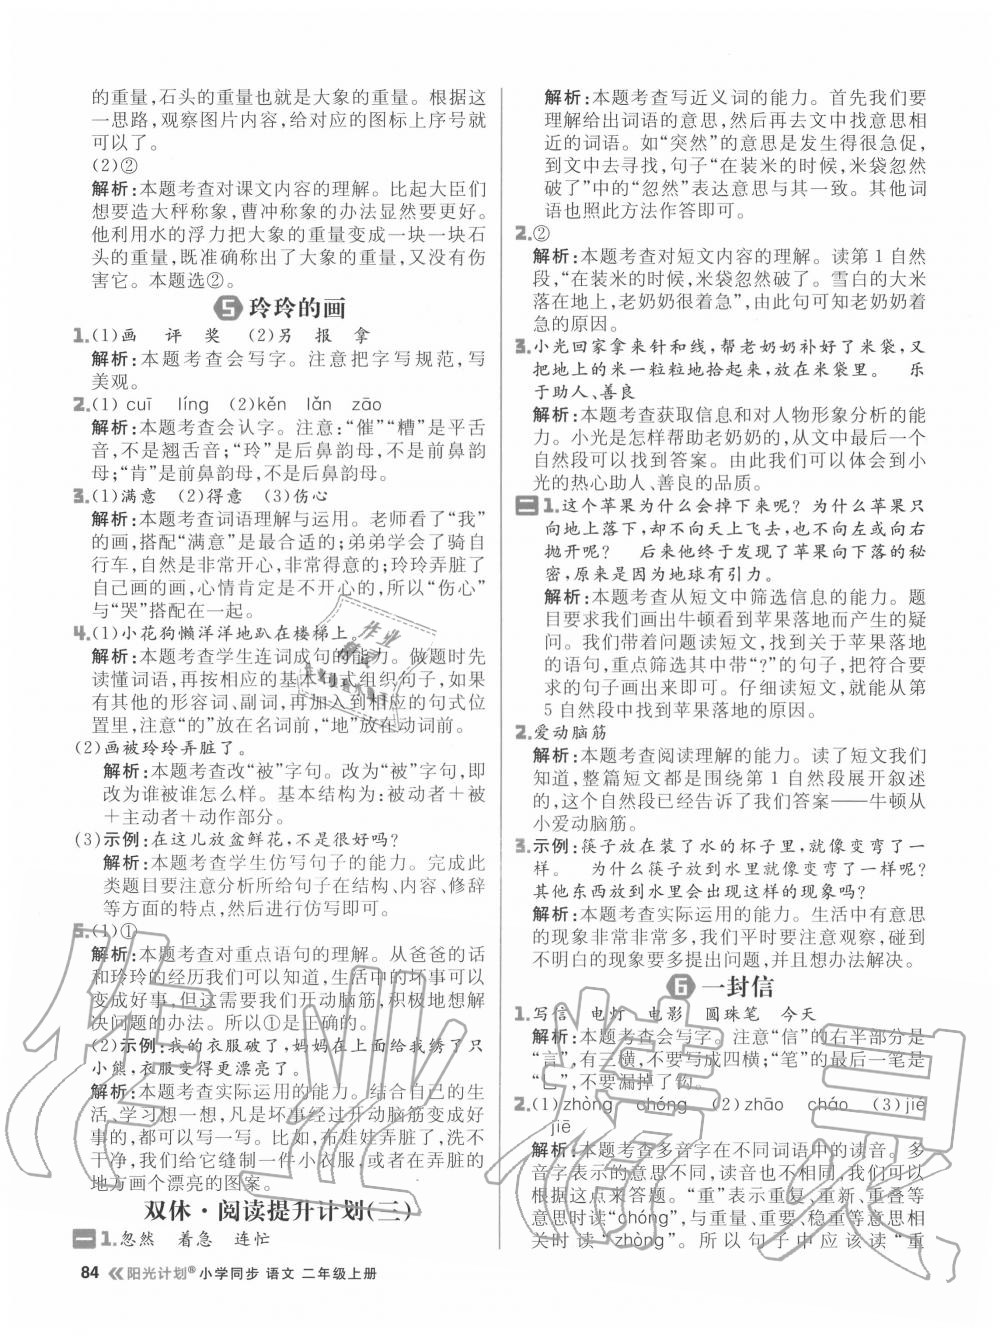 的重量,石头的重量也就是大象的重量。根据这
一思路,观察图片内容,给对应的图标上序号就
可以了。
(2)②
解析:本题考查对课文内容的理解。比起大臣们
想要造大秤称象,曹冲称象的办法显然要更好。
他利用水的浮力把大象的重量变成一块一块石
头的重量,既准确称出了大象的重量,又没有伤
害它。本题选②。
5 玲玲的画
1.(1)画 评 奖 (2)另 报 拿
解析:本题考查会写字。注意把字写规范,写
美观。
2.(1) cuī líng (2)kěn lǎn zāo
解析:本题考查会认字。注意:“催”“糟”是平舌
音,不是翘舌音;“玲”是后鼻韵母,不是前鼻韵
母;“肯”是前鼻韵母,不是后鼻韵母。
3.(1)满意 (2)得意 (3)伤心
解析:本题考查词语理解与运用。老师看了“我”
的画,搭配“满意”是最合适的;弟弟学会了骑自
行车,自然是非常开心,非常得意的;玲玲弄脏了
自己画的画,心情肯定是不开心的,所以“伤心”
与“哭”搭配在一起。
4.(1)小花狗懒洋洋地趴在楼梯上。
解析:本题考查学生连词成句的能力。做题时先
读懂词语,再按相应的基本句式组织句子,如果
有其他的形容词、副词,再加入到相应的句式位
置里,注意“的”放在名词前,“地”放在动词前。
(2)画被玲玲弄脏了。
解析:本题考查改“被”字句。改为“被”字句,即
改为谁被谁怎么样。基本结构为:被动者＋被
＋主动者＋动作部分。
(3)示例:在这儿放盆鲜花,不是很好吗?
解析:本题考查学生仿写句子的能力。完成此
类题目要注意分析所给句子在结构、内容、修辞
等方面的特点,然后进行仿写即可。
5.(1)①
解析:本题考查对重点语句的理解。从爸爸的话
和玲玲的经历我们可以知道,生活中的坏事可以
变成好事,但这需要我们开动脑筋,积极地想想
解决问题的办法。所以①是正确的。
(2)示例:我的衣服破了,妈妈在上面给我绣了只
小熊,衣服变得更漂亮了。
解析:本题考查实际运用的能力。结合自己的生
活,学习想一想,凡是坏事经过开动脑筋变成好事
的,都可以写一写。比如,布娃娃弄脏了,洗不
干净,我们给它缝制一件小衣服,或者在弄脏的
地方画个漂亮的图案。
双休·阅读提升计划(三)
一 1.忽然 着急 连忙
84 阳光计划® 小学同步 语文 二年级上册
解析:本题考查写近义词的能力。首先我们要
理解给出词语的意思,然后再去文中找意思相
近的词语。如“突然”的意思是发生得很急促,
到文中去寻找,句子“在装米的时候,米袋忽然
破了”中的“忽然”表达意思与其一致。其他词
语也照此方法作答即可。
2.②
解析:本题考查对短文内容的理解。读第 1 自然
段,“在装米的时候,米袋忽然破了。雪白的大米
落在地上,老奶奶很着急”,由此句可知老奶奶着
急的原因。
3.小光回家拿来针和线,帮老奶奶补好了米袋,又
把地上的米一粒粒地拾起来,放在米袋里。 乐
于助人、善良
解析:本题考查获取信息和对人物形象分析的能
力。小光是怎样帮助老奶奶的,从文中最后一个
自然段可以找到答案。由此我们可以体会到小
光的热心助人、善良的品质。
二 1.这个苹果为什么会掉下来呢? 为什么苹果只
向地上落下,却不向天上飞去,也不向左或向右
抛开呢? 后来他终于发现了苹果向下落的秘
密,原来是因为地球有引力。
解析:本题考查从短文中筛选信息的能力。题
目要求我们画出牛顿看到苹果落地而产生的疑
问。我们带着问题读短文,找到关于苹果落地
的语句,重点筛选其中带“?”的句子,把符合要
求的句子画出来即可。仔细读短文,就能从第
5 自然段中找到苹果落地的原因。
2.爱动脑筋
解析:本题考查阅读理解的能力。读了短文我们
知道,整篇短文都是围绕第 1 自然段展开叙述
的,这个自然段已经告诉了我们答案——牛顿从
小爱动脑筋。
3.示例:筷子放在装了水的杯子里,就像变弯了一
样。 为什么筷子放到水里就像变弯了一样?
其他东西放到水里会出现这样的现象吗?
解析:本题考查实际运用的能力。生活中有意思
的现象非常非常多,我们平时要注意观察,碰到
不明白的现象要多提出问题,并且想办法解决。
6 一封信
1.写信 电灯 电影 圆珠笔 今天
解析:本题考查会写字。注意“信”的右半部分是
“言”,有三横,不要写成四横;“笔”的最后一笔是
“乚”,不要漏掉了钩。
2.(1)zhòng chóng (2)zhāo cháo (3)jié
jiē
解析:本题考查多音字在不同词语中的读音。多
音字表示的意思不同,读音也不相同,我们可以
根据这点来答题。“重”表示重复、重新、重叠等
意思时读“chóng”,与重量、重要、稳重等意思相
关时读“zhòng”,所以句子中应该读“重